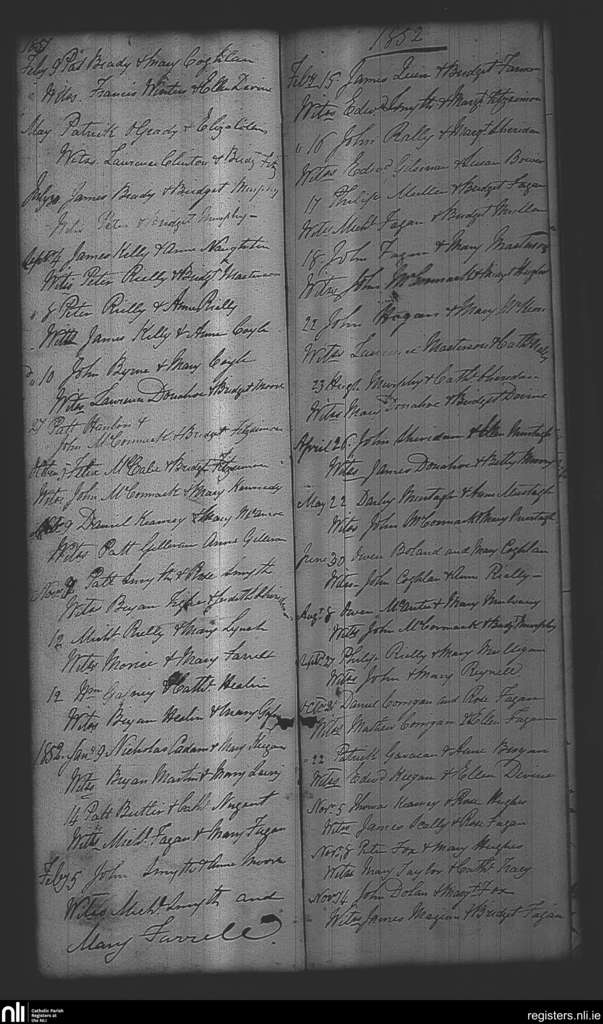 1851
Feby 9 Pat Brady & Mary Coghlan
Witns. Francis Winters & Ellen Devine
May Patrick O Grady & Eliza
Witns. Lawrence Clinton & Bridgt
July 30 James Brady & Bridget Murphy
Witns Peter & Bridget Murphy
Septr 4 James Kelly & Anne Naughten
Witns Peter Reilly & Bridgt Masterson
" 8 Peter Reilly & Anne Reilly
Witns James Kelly & Anne Coyle
" 10 John Byrne & Mary Coyle
Witns Lawrence Donahoe & Bridget Moore
27 Patt Hanlon &
John McCormack & Bridget Fitzsimon
Felix McCabe & Bridgt Fitzsimon
Witns John McCormack & Mary Kennedy
9 Daniel Kearney & Mary
Witns Patt Gillivan Anne Gillivan
Novr Patt Smyth & Rose Smyth
Witns Bryan & Judith Sheridan
12 Michl Reilly & Mary Lynch
Witns Morice & Mary Farrell
12 Wm Gafney & Cathe Healin
Witns Bryan Healin & Mary
1852. Jany 9 Nicholas Cadam & Mary Keegan
Witns Bryan Martin & Mary
14 Patt Butler & Cathe Nugent
Witns Michl Fagan & Mary Fagan
Feby 5 John Smyth & Anne Moore
Witns Michl Smyth and
Mary Farrell.
1852
Feby 15 James Quin & Bridget
Witns Edwd Smyth & Margt Fitzsimon
" 16 John Rally & Margt Sheridan
Witns Edwd & Susan Bower
17 Philip Mullen & Bridget Fagan
Witns Michl Fagan & Bridget Mullen
18 John Fagan & Mary Masterson
Witns John McCormack & Margt Hughes
22 John Hogan & Mary
Witns Lawrence Masterson & Cathe
23 Hugh Murphy & Cathe Sheridan
Witns Mary Donahoe & Bridget Devine
April 26 John Sheridan & Ellen Murtagh
Witns James Donahoe & Betty Murray
May 22 Darby Murtagh & Anne Murtagh
Witns John McCormack & Mary Murtagh
June 30 Owen Boland and Mary Coghlan
Witns John Coghlan & Anne Rielly
Augt 8 Owen & Mary Mulvany
Witns John McCormack & Bridgt Murphy
Septr 27 Philip Reilly & Mary Mulligan
Witns John & Mary Reynell
Octr Daniel Corrigan and Rose Fagan
Witns Mathew Corrigan & Ellen Fagan
" 22 Patrick & Anne Brogan
Witns Edwd Keegan & Ellen Devine
Novr. 5 Thomas Kearney & Rose Hughes
Witns James Scally & Rose Fagan
Novr. 8 Peter Fox & Mary Hughes
Witns Mary Taylor & Cathe Tracy
Novr 14 John Dolan & Margt Fox
Witns James & Bridget Fagan
nli
Catholic Parish
Registers at
the NLI
registers.nli.ie